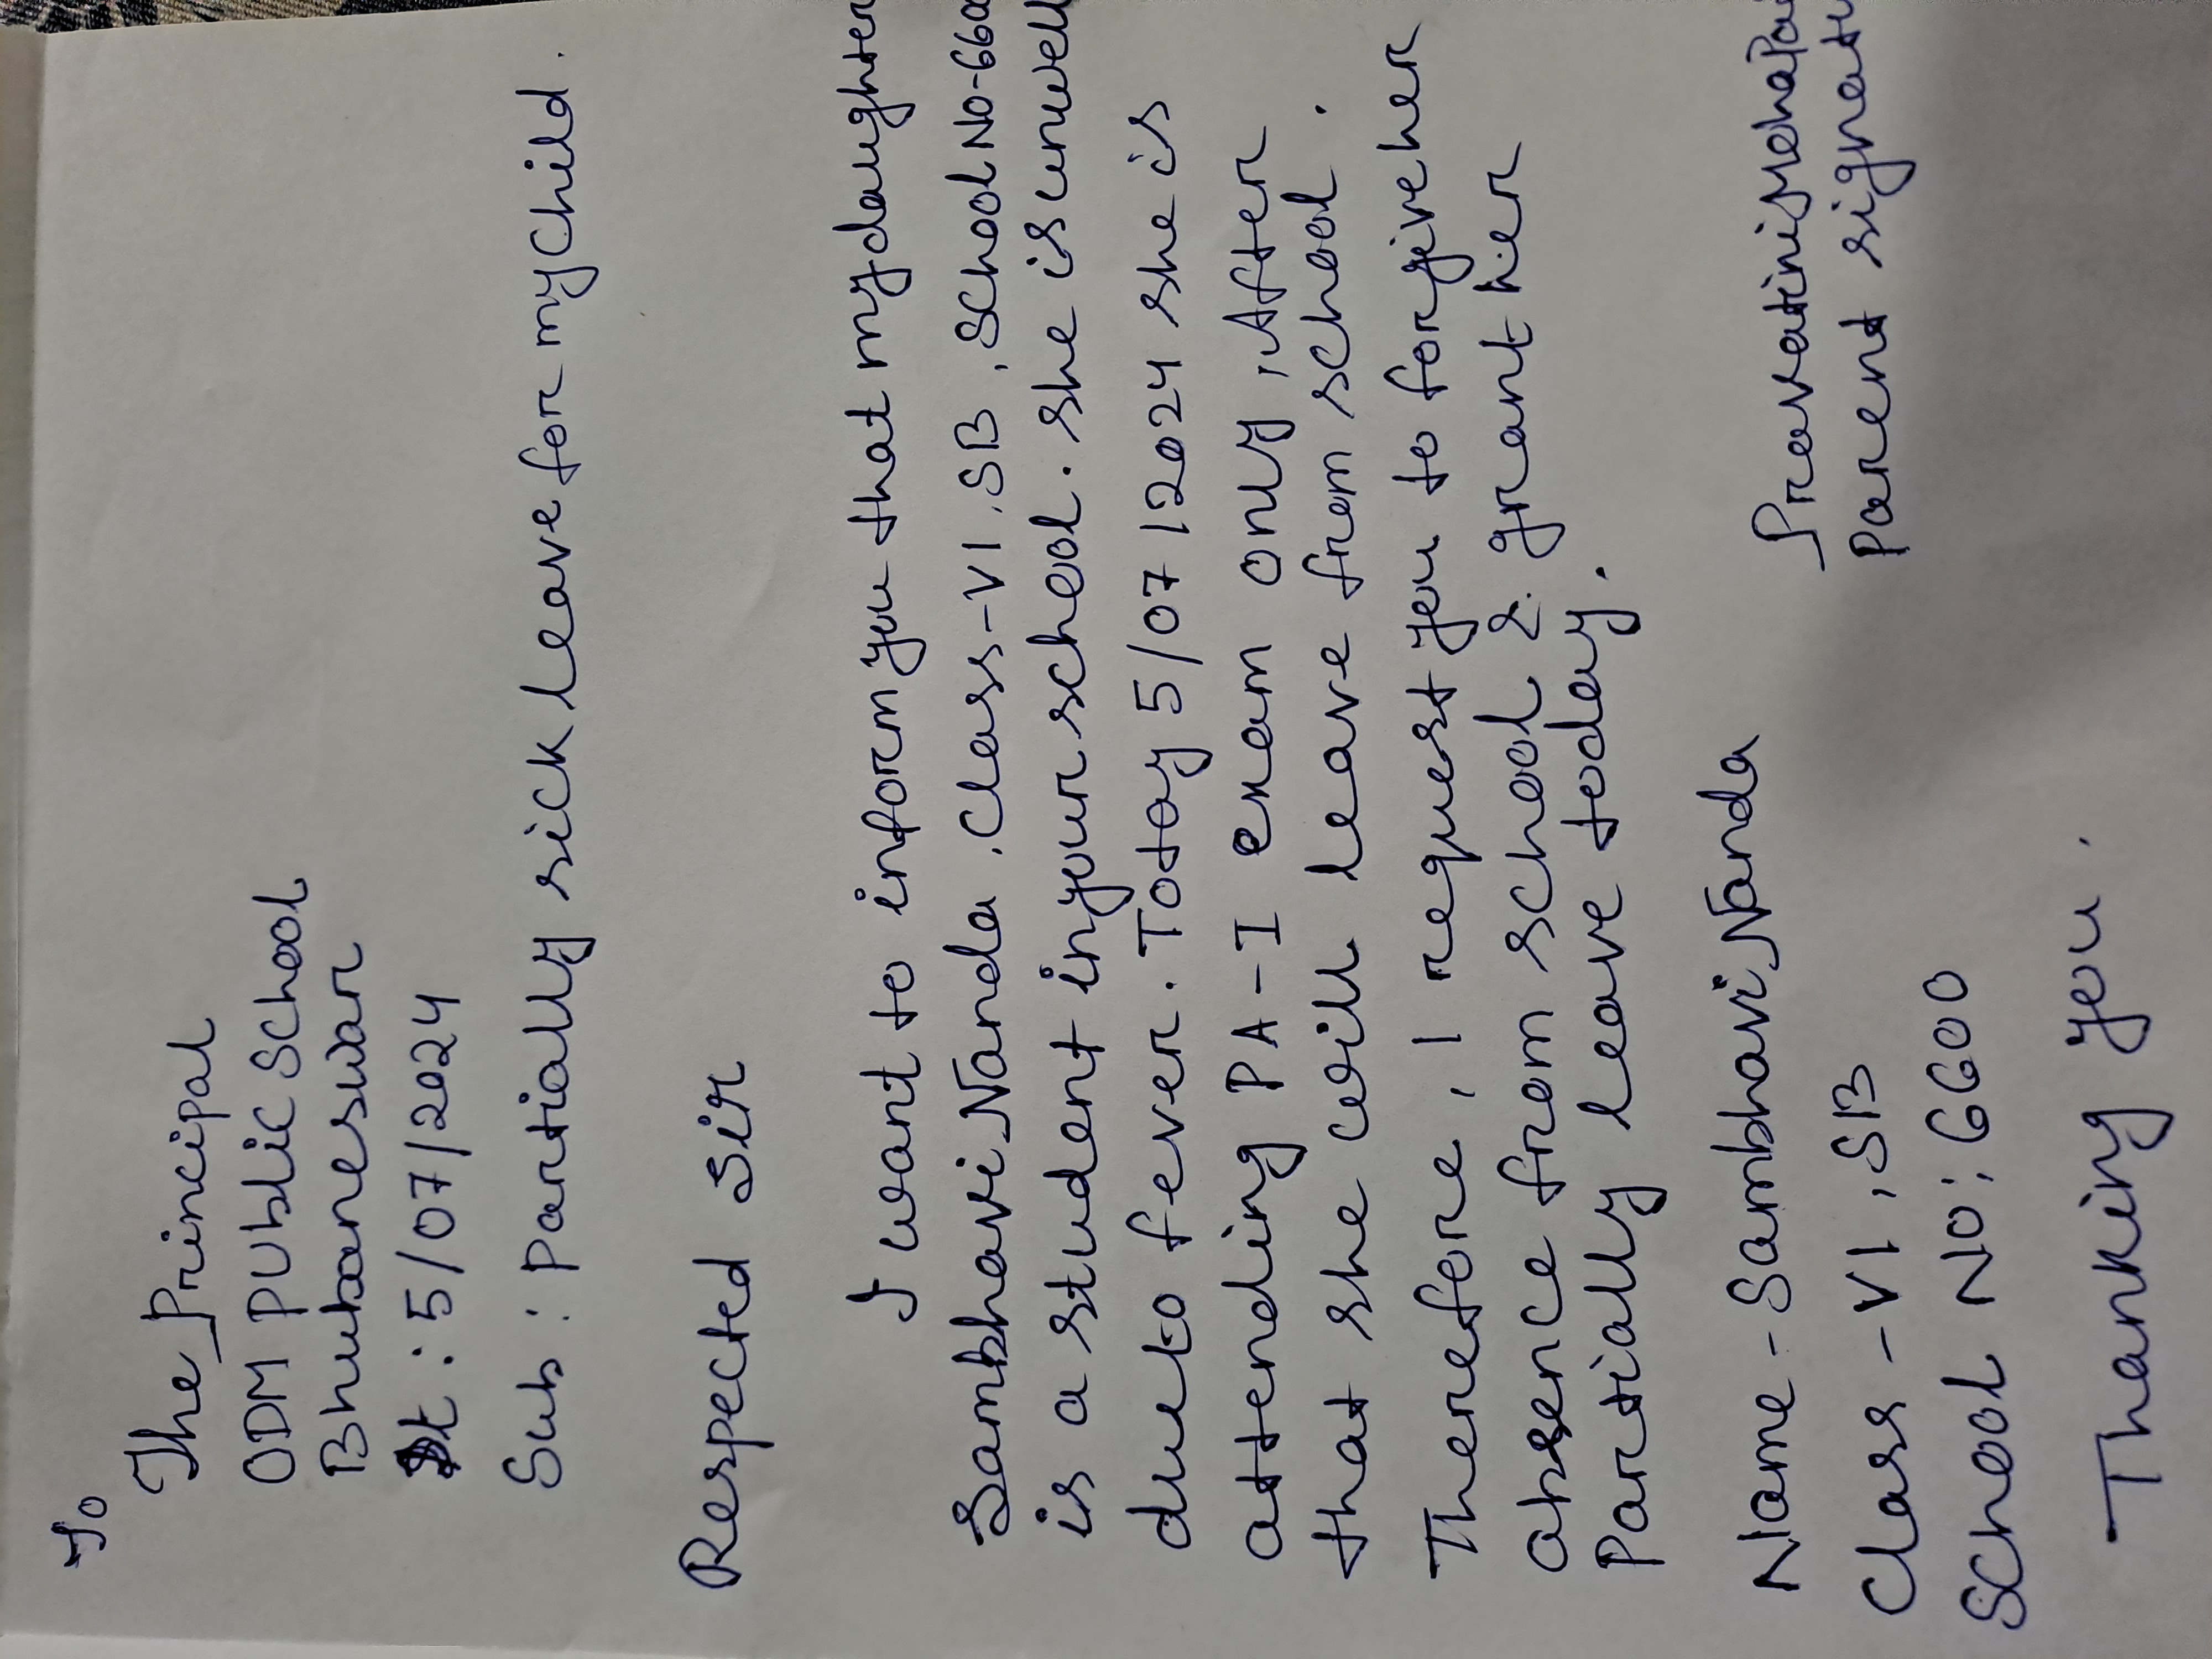 To
The Principal
ODM Public School
Bhubaneswar
Dt : 5/07/2024
Sub : Partially sick leave for my child.
Respected Sir
I want to inform you that my daughter
Sambhavi Nanda, Class-VI, SB, School No-660
is a student in your school. She is unwell
due to fever. Today 5/07/2024 she is
attending PA-I exam only, After
that she will leave from school.
Therefore, I request you to forgive her
absence from school & grant her
Partially leave today.
Name - Sambhavi Nanda
Class - VI, SB
School No: 6600
Parent
Thanking you.